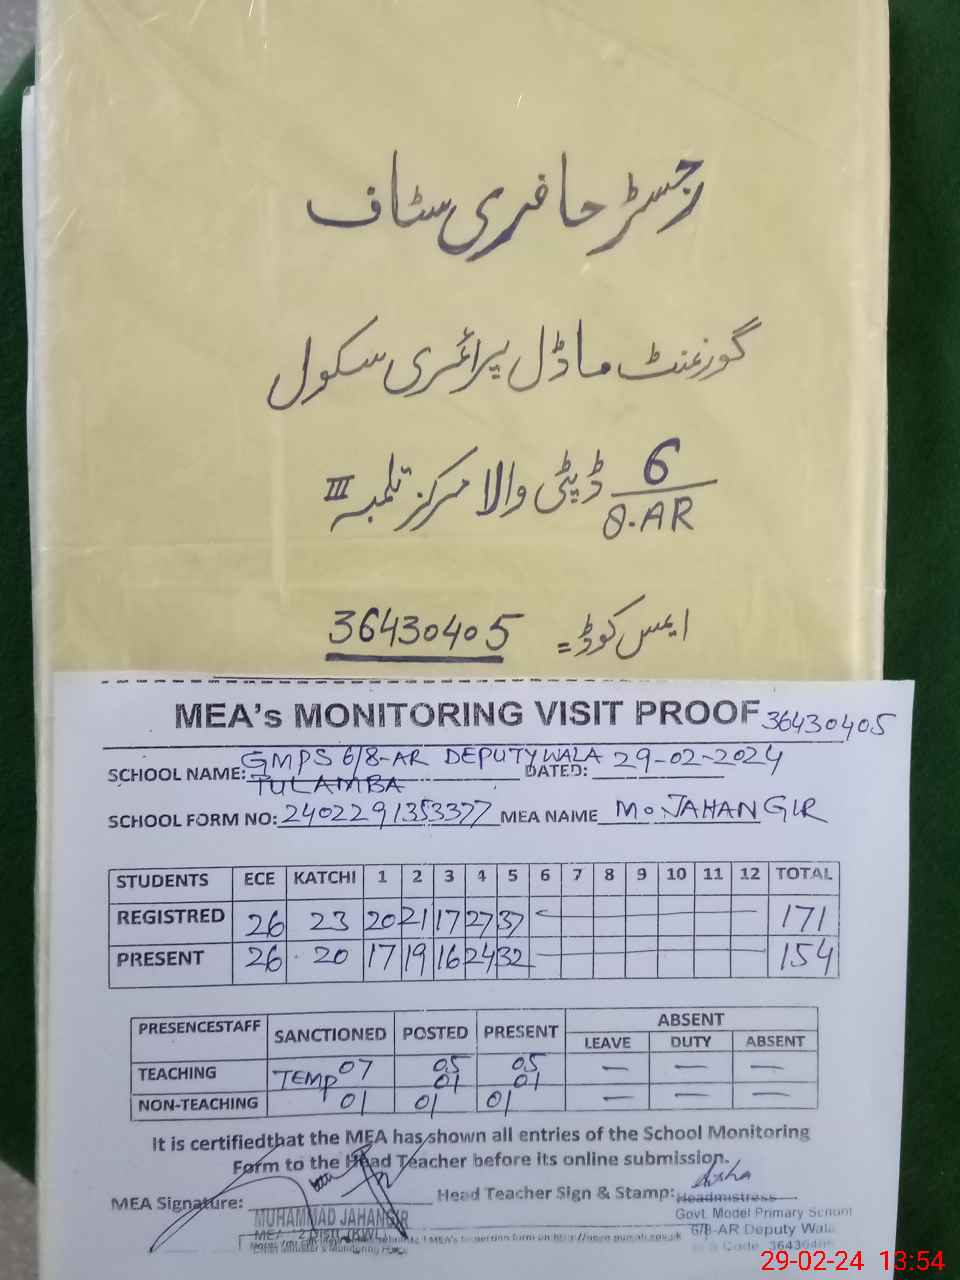 رجسٹر حاضری سٹاف
گورنمنٹ ماڈل پرائمری سکول
6/8.AR ڈپٹی والا مرکز تلمبہ III
ایمس کوڈ = 36430405
MEA's MONITORING VISIT PROOF 36430405
SCHOOL NAME: GMPS 6/8-AR DEPUTYWALA DATED: 29-02-2024
TULAMBA
SCHOOL FORM NO: 2402291353377 MEA NAME Mo JAHANGIR
STUDENTS ECE KATCHI 1 2 3 4 5 6 7 8 9 10 11 12 TOTAL
REGISTRED 26 23 20 21 17 27 37 171
PRESENT 26 20 17 19 16 24 32 154
PRESENCESTAFF SANCTIONED POSTED PRESENT ABSENT
LEAVE DUTY ABSENT
TEACHING 07 05 05 — — —
TEMP 01 01
NON-TEACHING 01 01 01 — — —
It is certifiedthat the MEA has shown all entries of the School Monitoring
Form to the Head Teacher before its online submission.
MEA Signature: Head Teacher Sign & Stamp:
Headmistress
MUHAMMAD JAHANGIR Govt. Model Primary School
6/8-AR Deputy Wala
Code 36430405
29-02-24 13:54